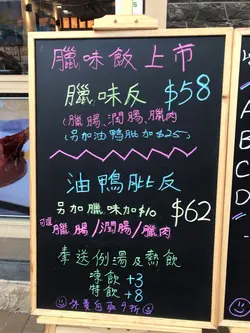 臘味飯上市
臘味反 $58
(臘腸、潤腸、臘肉
(另加油鴨髀加$25)
油鴨髀反
另加臘味加$10 $62
可選臘腸/潤腸/臘肉
奉送例湯及熱飲
凍飲+3
特飲+8
外賣自取9折